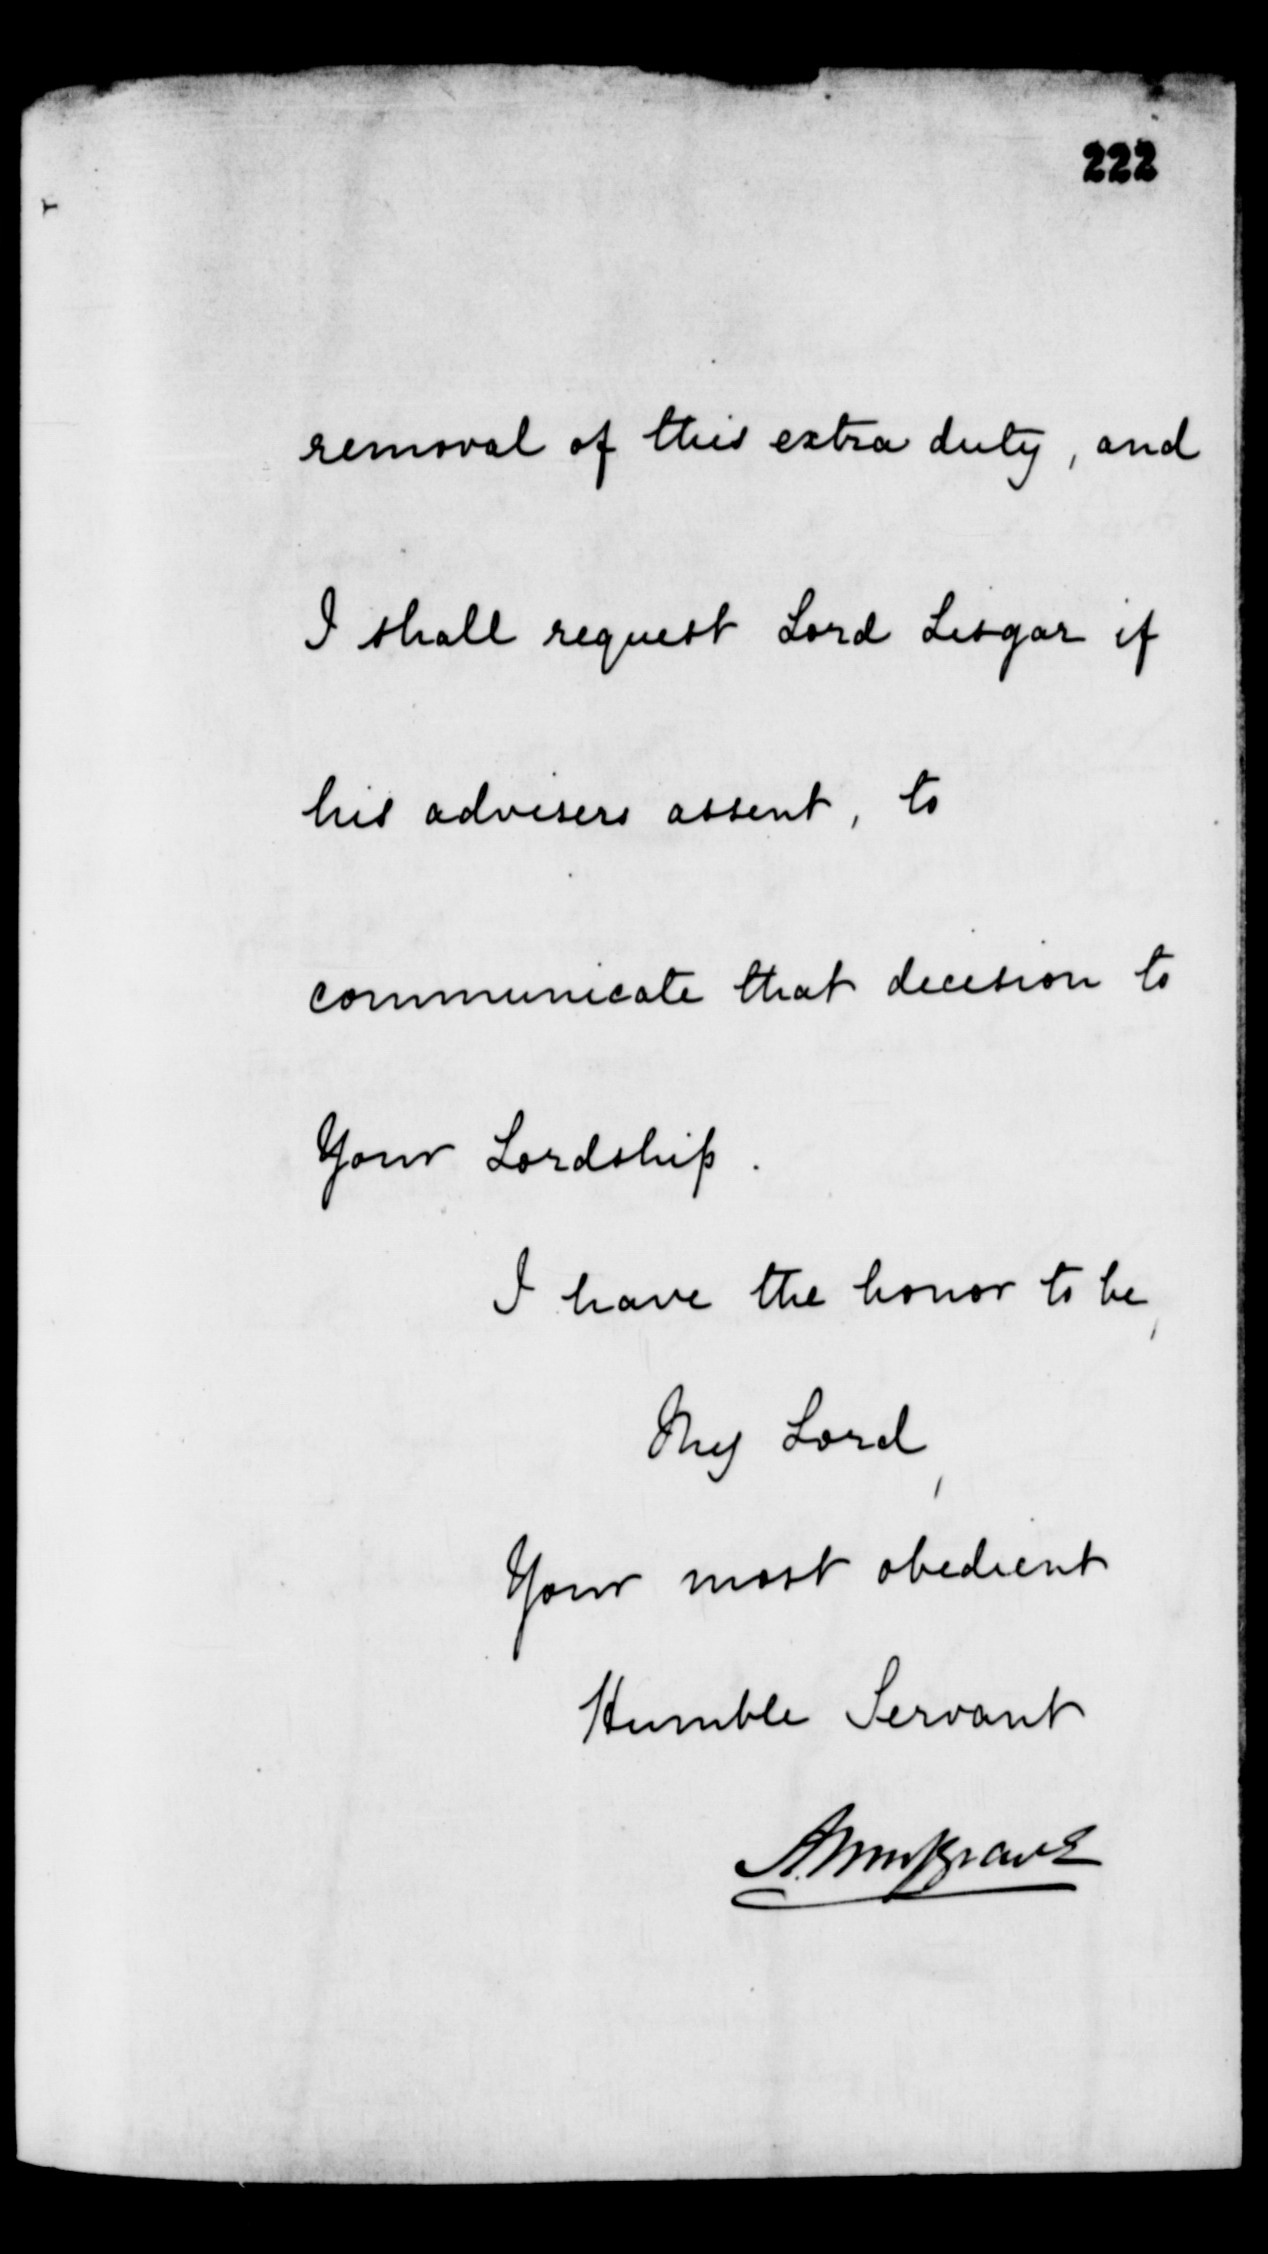 222
removal of this extra duty, and
I shall request Lord Lisgar if
his advisers assent, to
communicate that decision to
Your Lordship.
I have the honor to be,
My Lord,
Your most obedient
Humble Servant
A. Musgrave